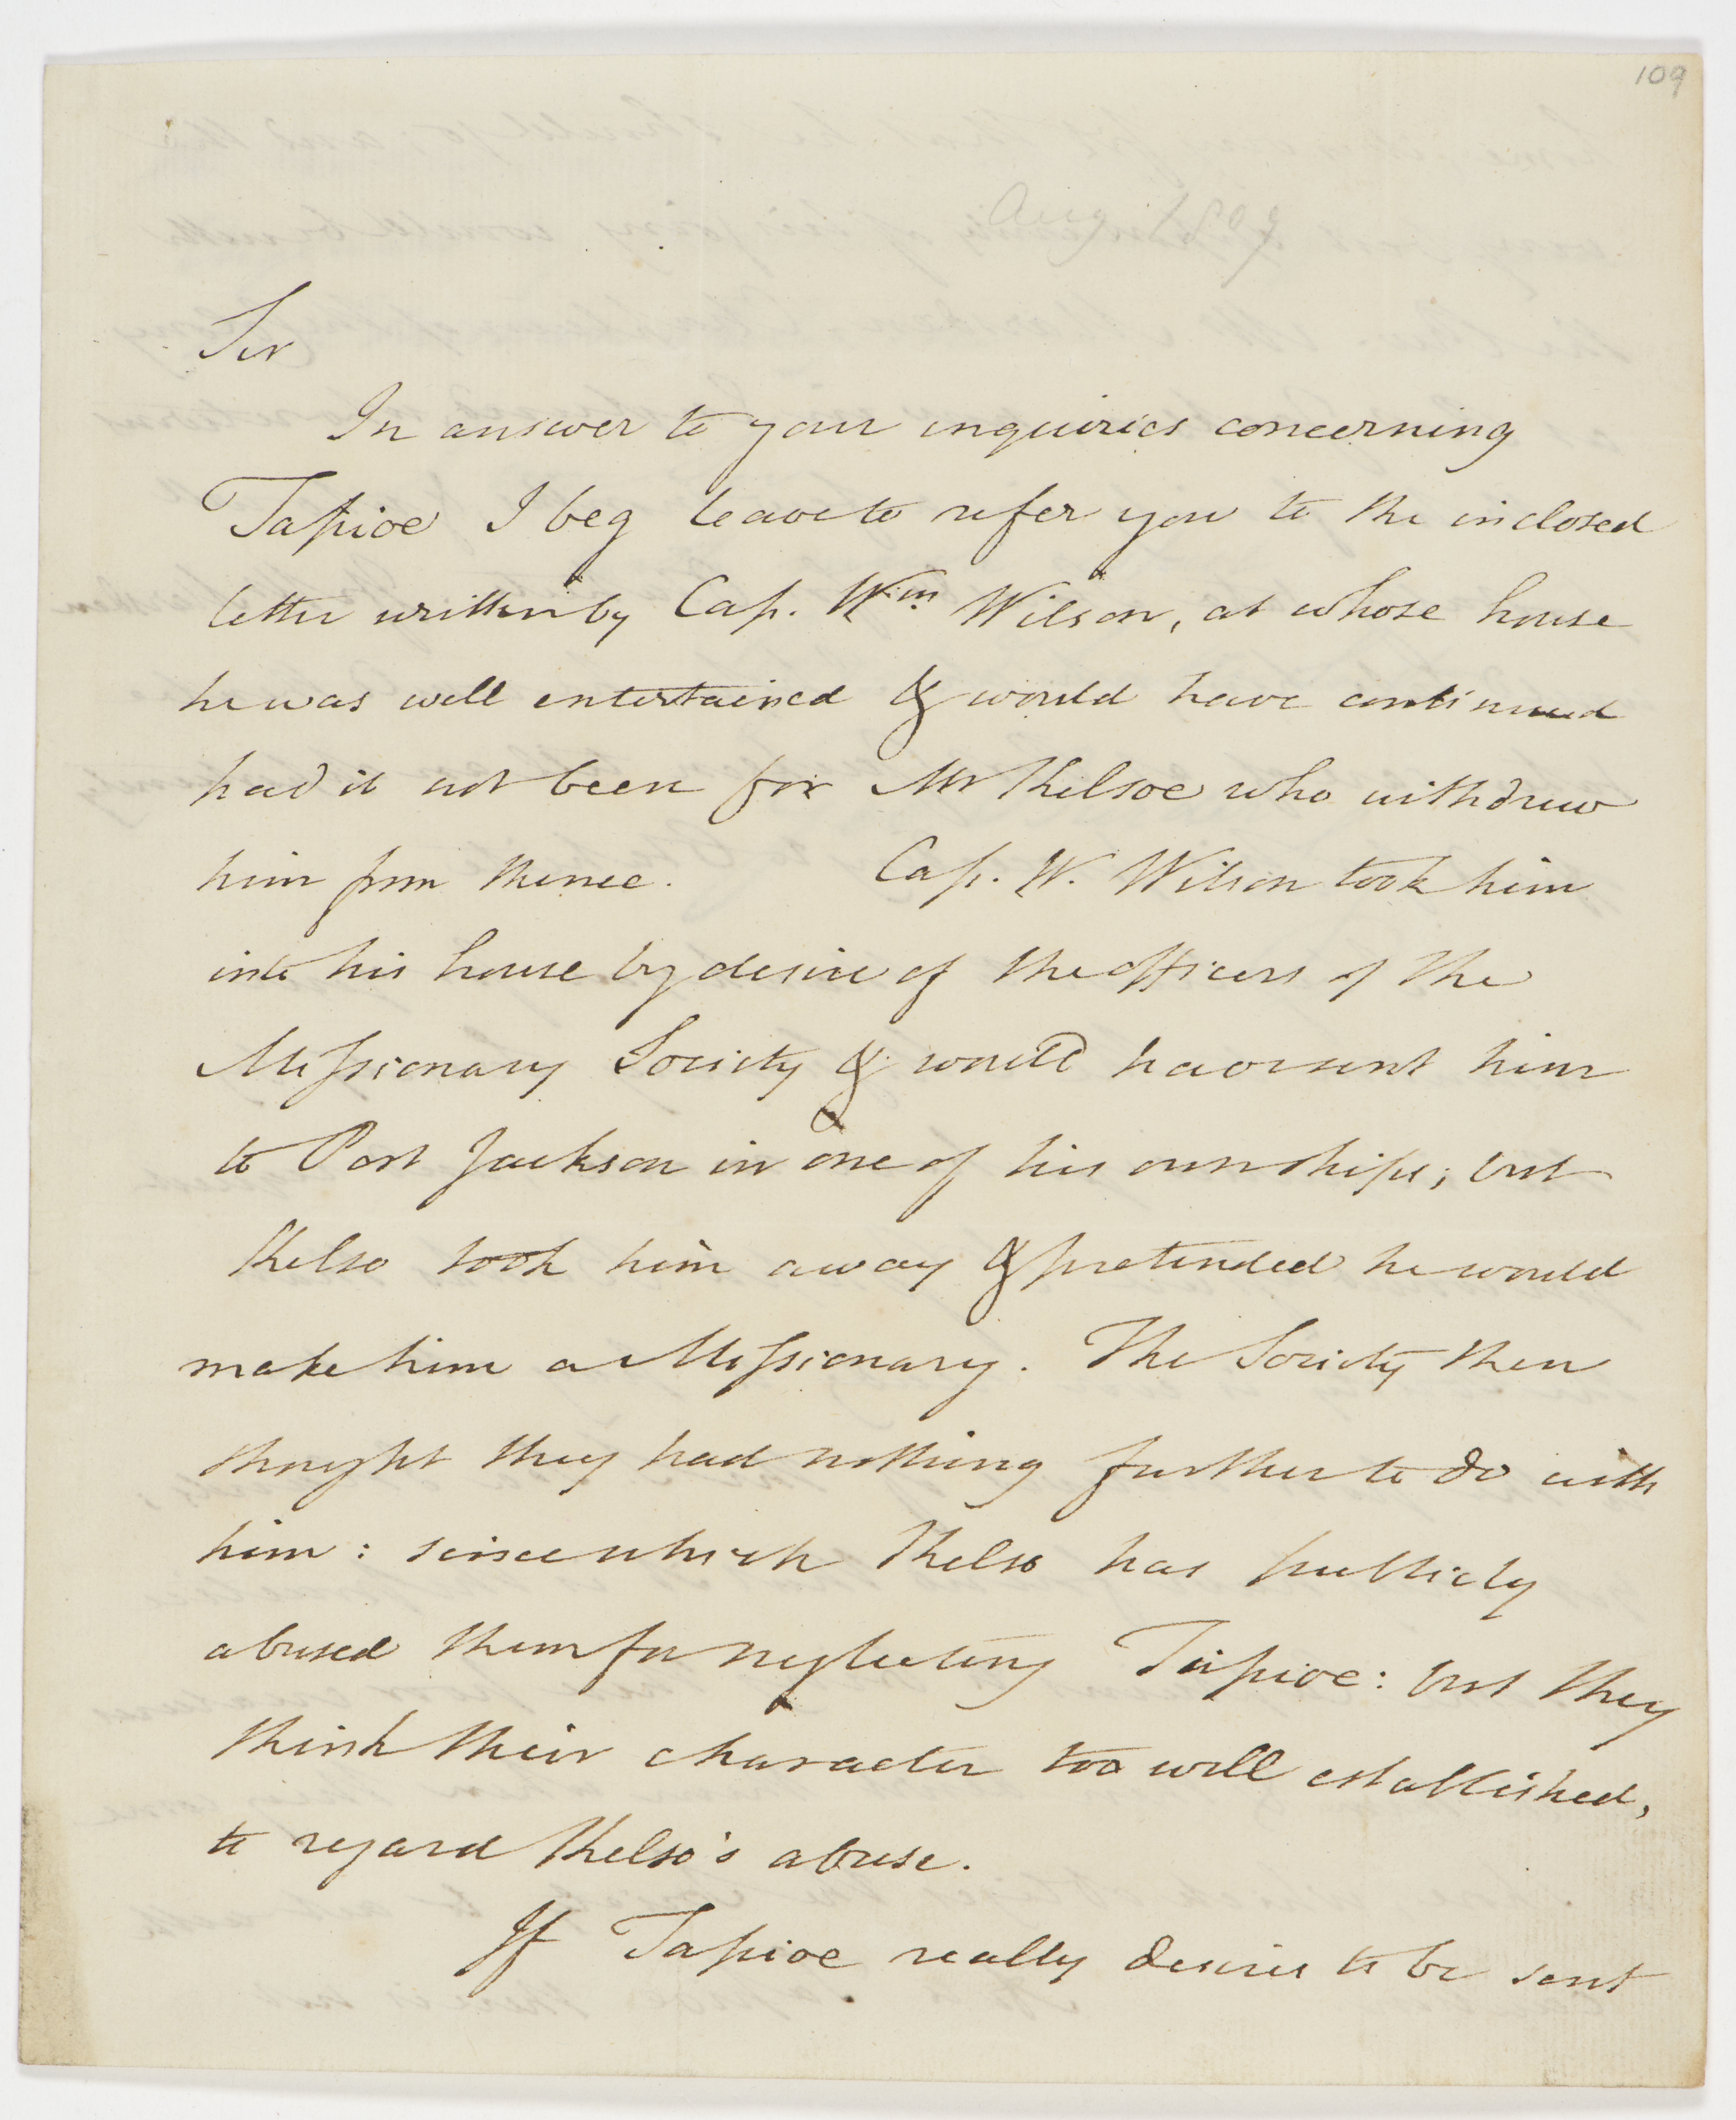 109
Aug 1809
Sir
In answer to your inquiries concerning
Tapioe I beg leave to refer you to the inclosed
letter written by Cap. Wm. Wilson, at whose house
he was well entertained & would have continued
had it not been for Mr Kelsoe who withdrew
him from thence. Cap. W. Wilson took him
into his house by desire of the officers of the
Missionary Society & would have sent him
to Port Jackson in one of his own ships; but
Kelso took him away & pretended he would
make him a Missionary. The Society then
thought they had nothing further to do with
him: since which Kelso has publicly
abused them for neglecting Tapioe: but they
think their character too well established,
to regard Kelso's abuse.
If Tapioe really desires to be sent